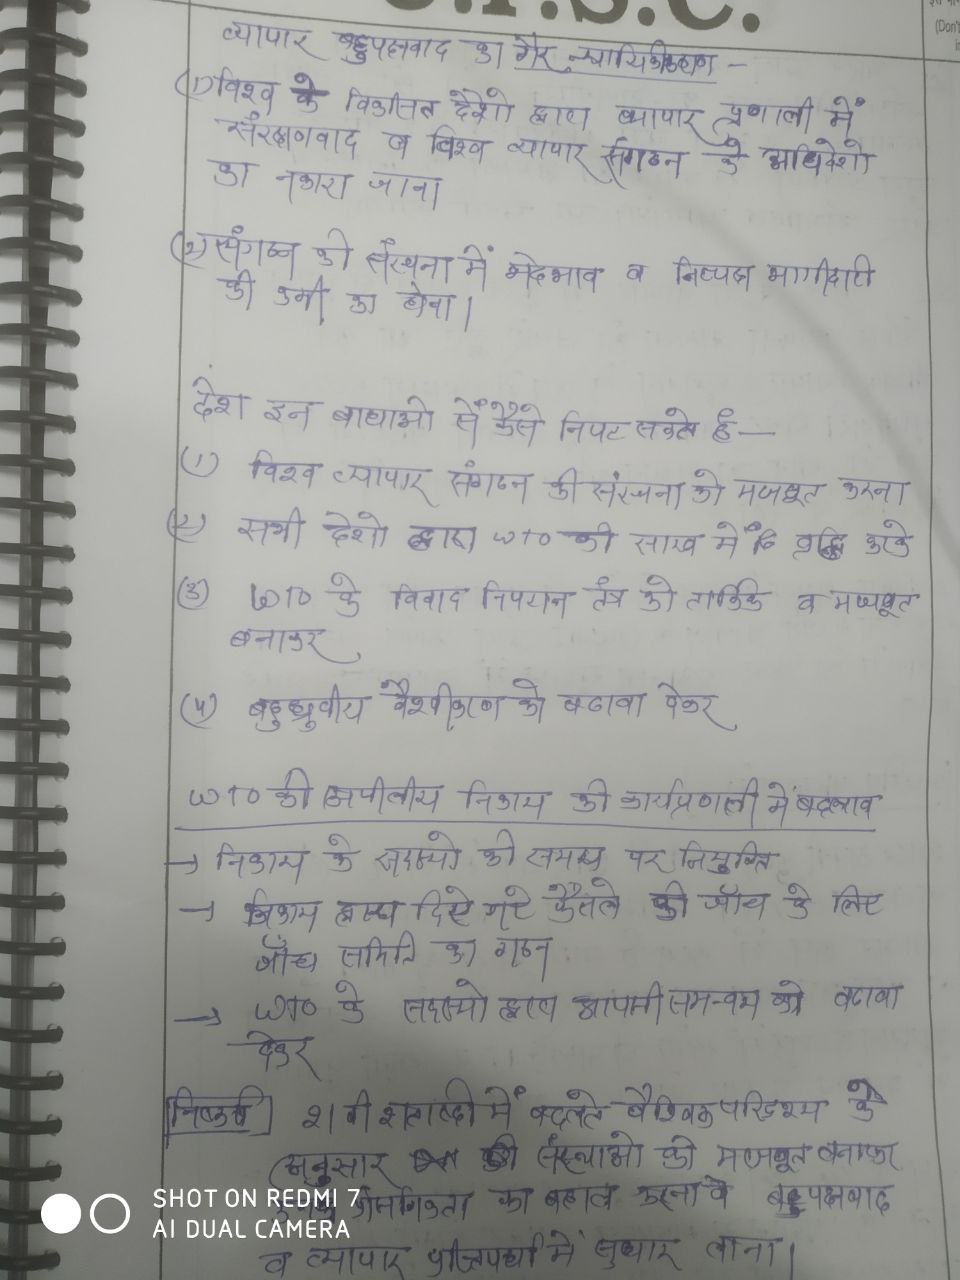 U.P.S.C.
(Don't
व्यापार बहुपक्षवाद का गैर न्यायिकीकरण -
(1) विश्व के विकसित देशो द्वारा व्यापार प्रणाली में
संरक्षणवाद व विश्व व्यापार संगठन के अधिवेशो
का नकारा जाना
(2) संगठन की संरचना में भेदभाव व निष्पक्ष भागीदारी
की कमी का होना।
देश इन बाधाओ से कैसे निपट सकते हैं—
(1) विश्व व्यापार संगठन की संरचना को मजबूत करना
(2) सभी देशो द्वारा WTO की साख में वृद्धि करके
(3) WTO के विवाद निपटान तंत्र को तार्किक व मजबूत
बनाकर
(4) बहुध्रुवीय वैश्वीकरण को बढावा देकर
WTO की अपीलीय निकाय की कार्यप्रणाली में बदलाव
→ निकाय के सदस्यो की समय पर नियुक्ति
→ निकाय द्वारा दिये गए फैसले की जाँच के लिए
जाँच समिति का गठन
→ WTO के सदस्यो द्वारा आपसी समन्वय को बढावा
देकर
निष्कर्ष 21 वी शताब्दी में बदलते वैश्विक परिदृश्य के
अनुसार की संस्थाओ को मजबूत बनाकर
प्रासंगिकता का बहाल करना व बहुपक्षवाद
व व्यापार में सुधार लाना।
SHOT ON REDMI 7
AI DUAL CAMERA